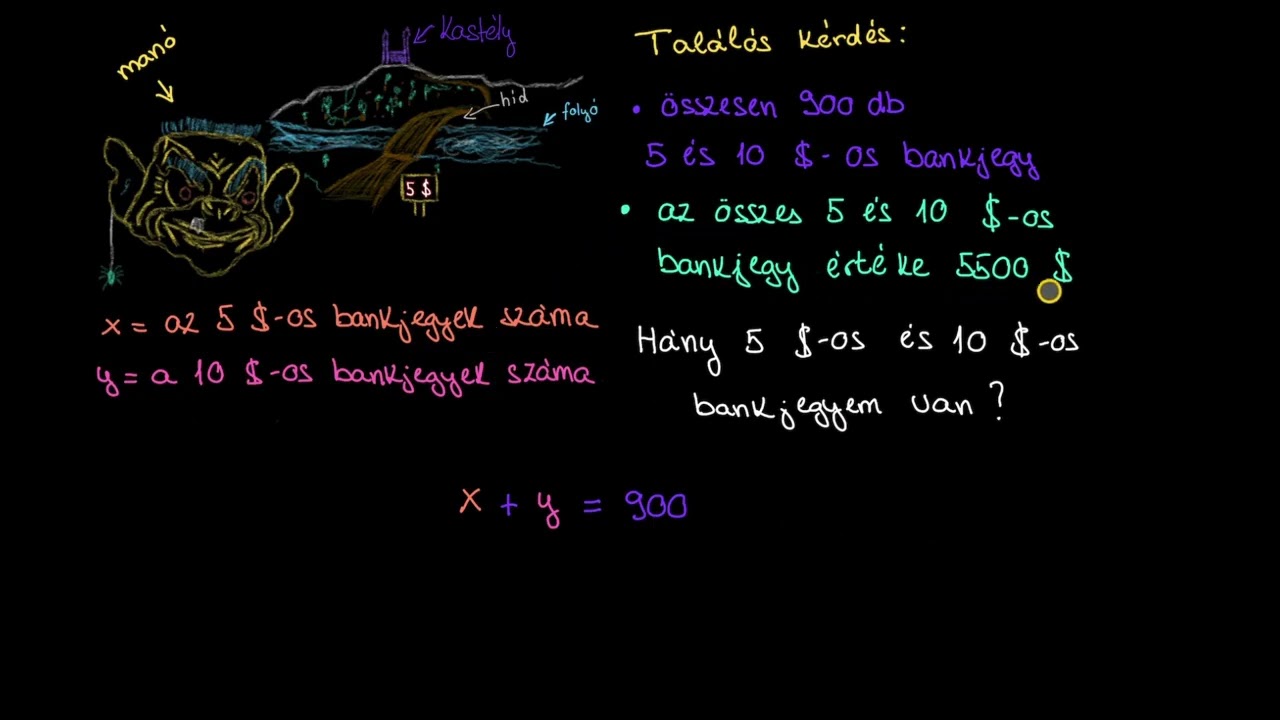 manó
Kastély
híd
folyó
5 $
Találós kérdés:
• összesen 900 db
5 és 10 $-os bankjegy
• az összes 5 és 10 $-os
bankjegy értéke 5500 $
Hány 5 $-os és 10 $-os
bankjegyem van?
x = az 5 $-os bankjegyek száma
y = a 10 $-os bankjegyek száma
x + y = 900